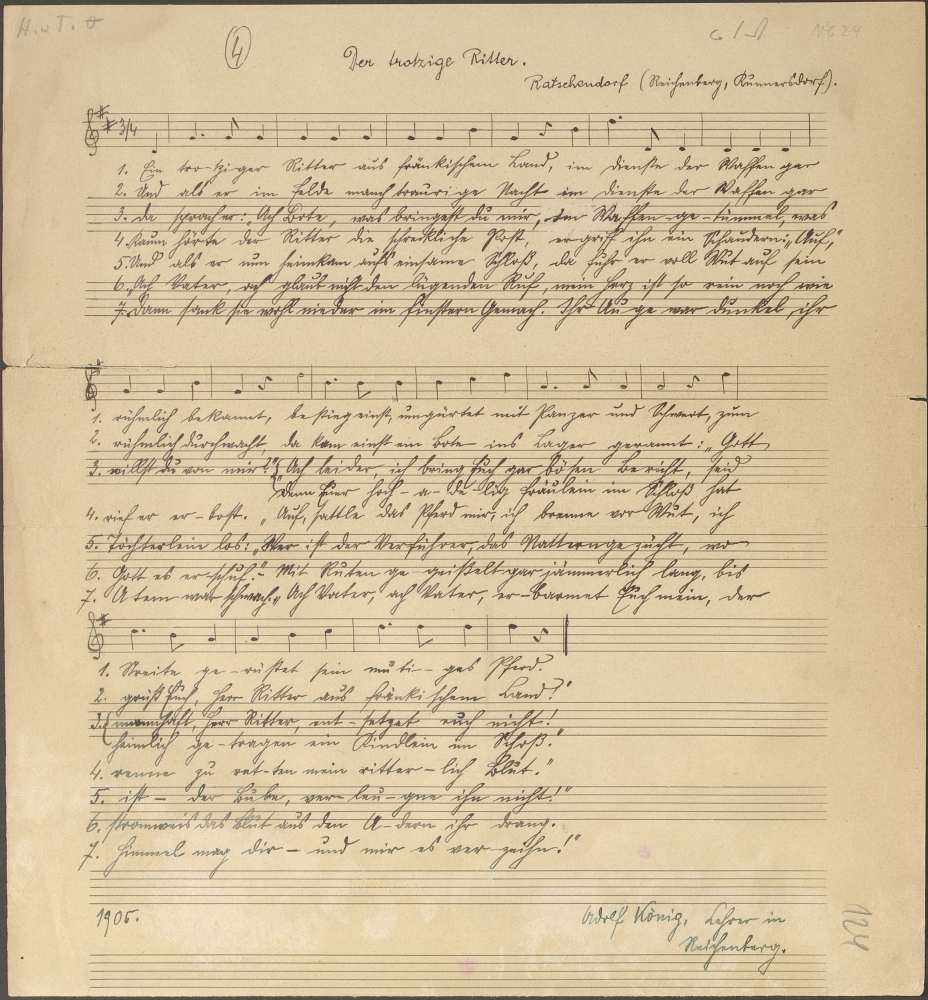 H. u. T.
4
N 624
Der trotzige Ritter.
Ratschendorf (Reichenberg, Kunnersdorf).
3/4
1. Ein tro-tziger Ritter aus fränkischem Land, im Dienste der Waffen gar
2. Und als er im Felde manch traurige Nacht im Dienste der Waffen gar
3. Da sprach er: „Ach Bote, was bringest du mir, im Waffen-ge-tümmel, was
4. Kaum hörte der Ritter die schreckliche Post, ergriff ihn ein Schaudern: „Auf,"
5. Und als er nun heimkam aufs einsame Schloß, da fuhr er voll Wut auf sein
6. „Ach Vater, ach glaubt nicht den lügenden Ruf, mein Herz ist so rein noch wie
7. Dann sank sie wohl nieder im finstern Gemach. Ihr Au-ge war dunkel, ihr
1. rühmlich bekannt, be-stieg einst, umgürtet mit Panzer und Schwert, zum
2. rühmlich durchwacht, da kam einst ein Bote ins Lager gerannt: „Gott
3. willst du von mir?" „Ach leider, ich bring Euch gar bösen Bericht, seid
Denn Euer hoch-a-de-lig Fräulein im Schloß hat
4. rief er er-bost. „Auf, sattle das Pferd mir, ich brenne vor Wut, ich
5. Töchterlein los: „Wer ist der Verführer, das Natterngezücht, wo
6. Gott es er-schuf." - Mit Ruten ge-geißelt gar jämmerlich lang, bis
7. Atem war schwach. „Ach Vater, ach Vater, er-barmet Euch mein, der
1. Streite ge-rüstet sein mu-ti-ges Pferd.
2. grüß Euch, Herr Ritter aus fränkischem Land!"
3. mannhaft, Herr Ritter, ent-setzet euch nicht!
heimlich ge-tragen ein Kindlein im Schoß."
4. renne zu ret-ten mein ritter-lich Blut."
5. ist - der Bube, ver-leu-gne ihn nicht!"
6. stromweis das Blut aus den A-dern ihr drang.
7. Himmel mag dir - und mir es ver-zeihn!"
1905.
Adolf König, Lehrer in
Reichenberg.
124